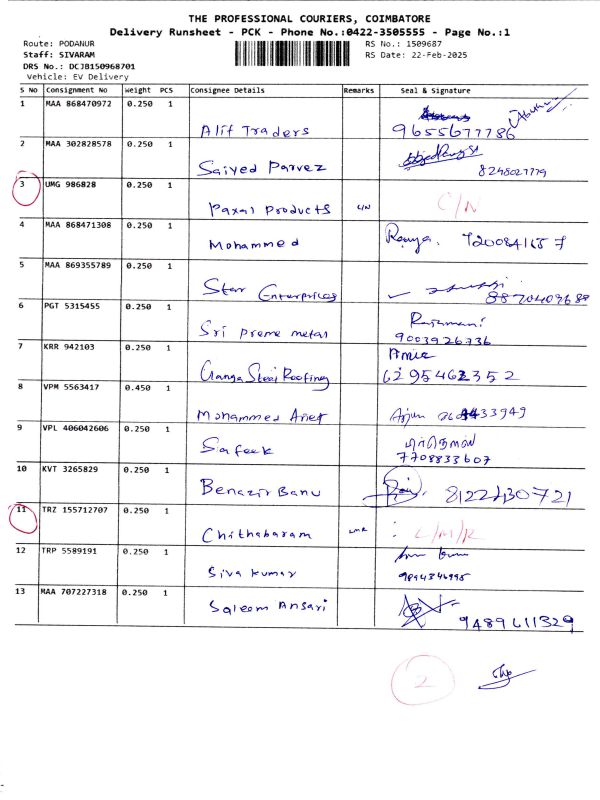 THE PROFESSIONAL COURIERS, COIMBATORE
Delivery Runsheet - PCK - Phone No.:0422-3505555 - Page No.:1
Route: PODANUR
Staff: SIVARAM
DRS No.: DCJB150968701
Vehicle: EV Delivery
RS No.: 1509687
RS Date: 22-Feb-2025
S No Consignment No Weight PCS Consignee Details Remarks Seal & Signature
1 MAA 868470972 0.250 1
Alif Traders 9655677786
2 MAA 302828578 0.250 1
Saiyed Parvez 8248027779
3 UMG 986828 0.250 1
Paxal Products C/N C/N
4 MAA 868471308 0.250 1
Mohammed Ramya.
5 MAA 869355789 0.250 1
Star Enterprices
6 PGT 5315455 0.250 1
Sri preme metal Rajamani
9003926736
7 KRR 942103 0.250 1
Ganga Steel Roofing 6295462352
8 VPM 5563417 0.450 1
Mohammed Arjun
9 VPL 406042606 0.250 1
Safeek 7708833607
10 KVT 3265829 0.250 1
Benazir Banu 8122430721
11 TRZ 155712707 0.250 1
Chithabaram LMR L/M/R
12 TRP 5589191 0.250 1
Siva kumar
13 MAA 707227318 0.250 1
Saleem Ansari 9489611329
2